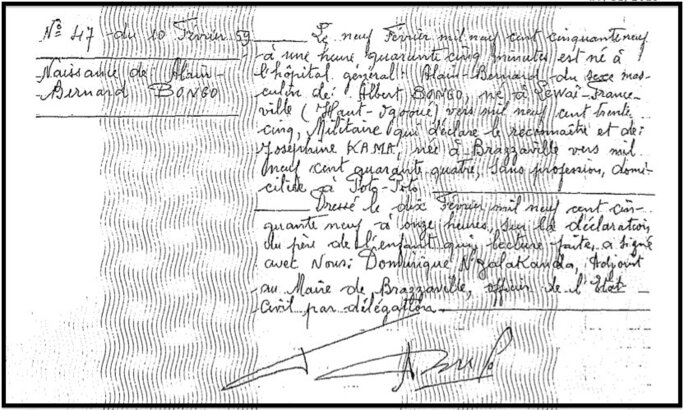 N° 47 du 10 Février 59
Naissance de Alain-
Bernard BONGO
Le neuf Février mil neuf cent cinquante neuf
à une heure quarante cinq minutes est né à
l'hôpital général: Alain-Bernard du sexe mas-
culin de: Albert BONGO, né à Lewaï-France-
ville (Haut-Ogooué) vers mil neuf cent trente
cinq, Militaire qui déclare le reconnaître et de:
Joséphine KAMA, née à Brazzaville vers mil
neuf cent quarante quatre, sans profession, domi-
ciliée à Poto-Poto
Dressé le dix Février mil neuf cent cin-
quante neuf à onze heures, sur la déclaration
du père de l'enfant qui, lecture faite, a signé
avec Nous: Dominique N'Galakanda, Adjoint
au Maire de Brazzaville, officier de l'Etat-
Civil par délégation